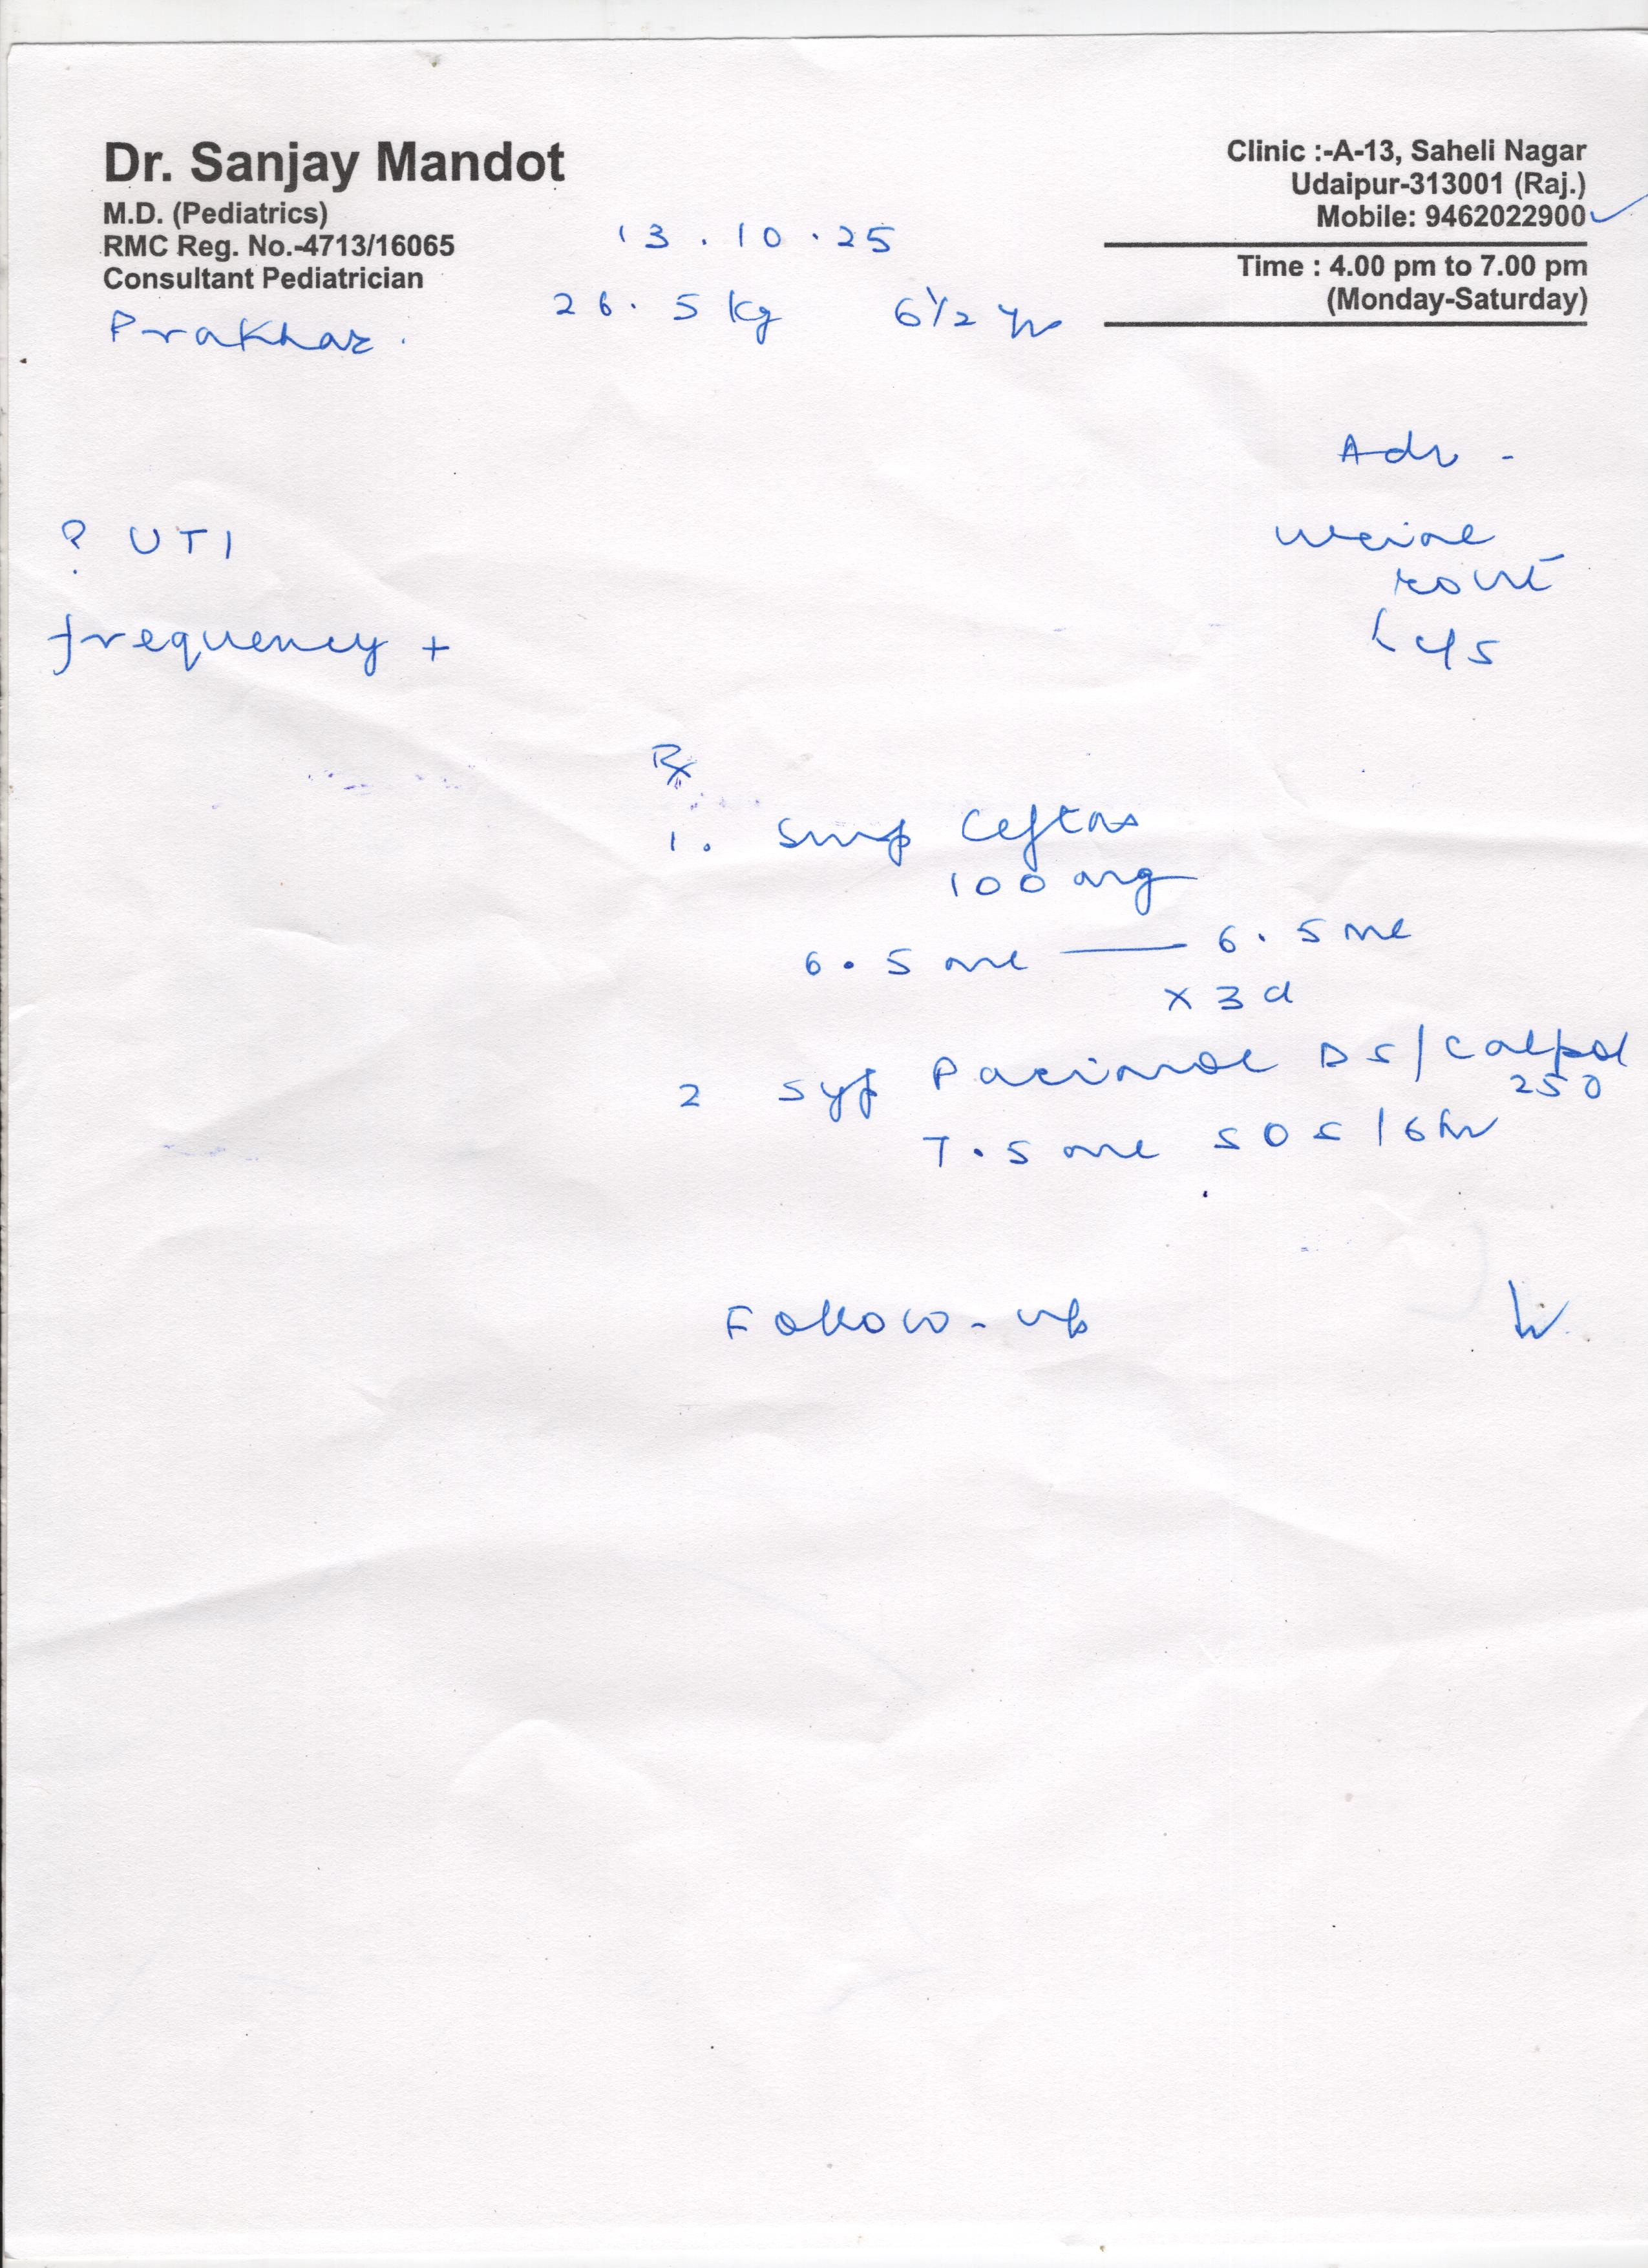 Dr. Sanjay Mandot
M.D. (Pediatrics)
RMC Reg. No.-4713/16065
Consultant Pediatrician
Clinic :-A-13, Saheli Nagar
Udaipur-313001 (Raj.)
Mobile: 9462022900
Time : 4.00 pm to 7.00 pm
(Monday-Saturday)
13.10.25
Prakhar. 26.5 kg 6 1/2 yr
Adv -
? UTI
urine
frequency +
c/s
Rx
1. Syrup Ceftas
100 mg
6.5 ml — 6.5 ml
x 3 d
2 Syp Pacimol DS/Calpol
250
7.5 ml SOS/6hr
Follow-up